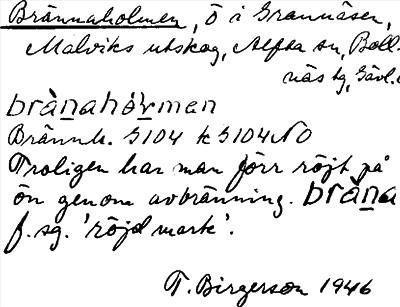 Brännaholmen, ö i Grannäsen,
Malviks utskog, Alfta sn, Boll-
näs tg, Gävl.
brànahówmen
Brännh. G104 k G104NO
Troligen har man förr röjt på
ön genom avbränning. bràna
f. sg. 'röjd mark'.
T. Birgerson 1946